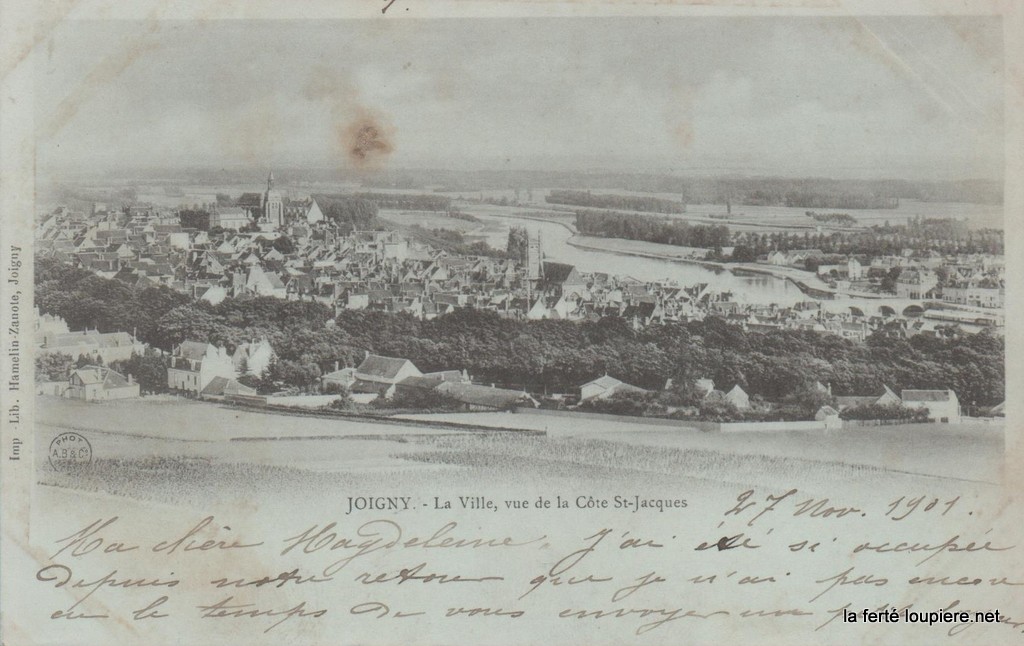 Imp - Lib. Hamelin-Zanote, Joigny
PHOT
A.B & Cie
JOIGNY. - La Ville, vue de la Côte St-Jacques
27 Nov. 1901.
Ma chère Magdeleine, J'ai été si occupée
depuis notre retour que je n'ai pas encore
eu le temps de vous envoyer un
la ferté loupiere.net